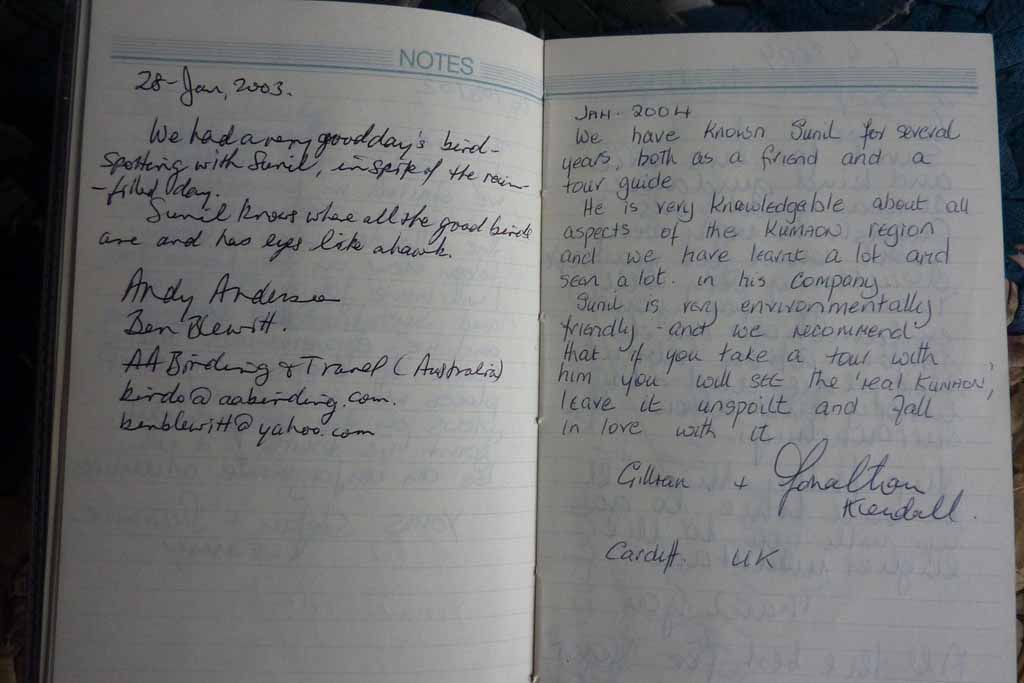 NOTES
28-Jan, 2003.
We had a very good day's bird-
spotting with Sunil, in spite of the rain
-filled day.
Sunil knows where all the good birds
are and has eyes like a hawk.
Andy Anderson
Ben Blewitt.
AA Birding & Travel (Australia)
birdo@aabirding.com.
benblewitt@yahoo.com
JAN. 2004
We have known Sunil for several
years, both as a friend and a
tour guide
He is very knowledgable about all
aspects of the KUMAON region
and we have learnt a lot and
seen a lot. in his company
Sunil is very environmentally
friendly - and we recommend
that if you take a tour with
him you will see the 'real KUMAON',
leave it unspoilt and fall
in love with it
Gillian + Jonathan
Kendall.
Cardiff. UK